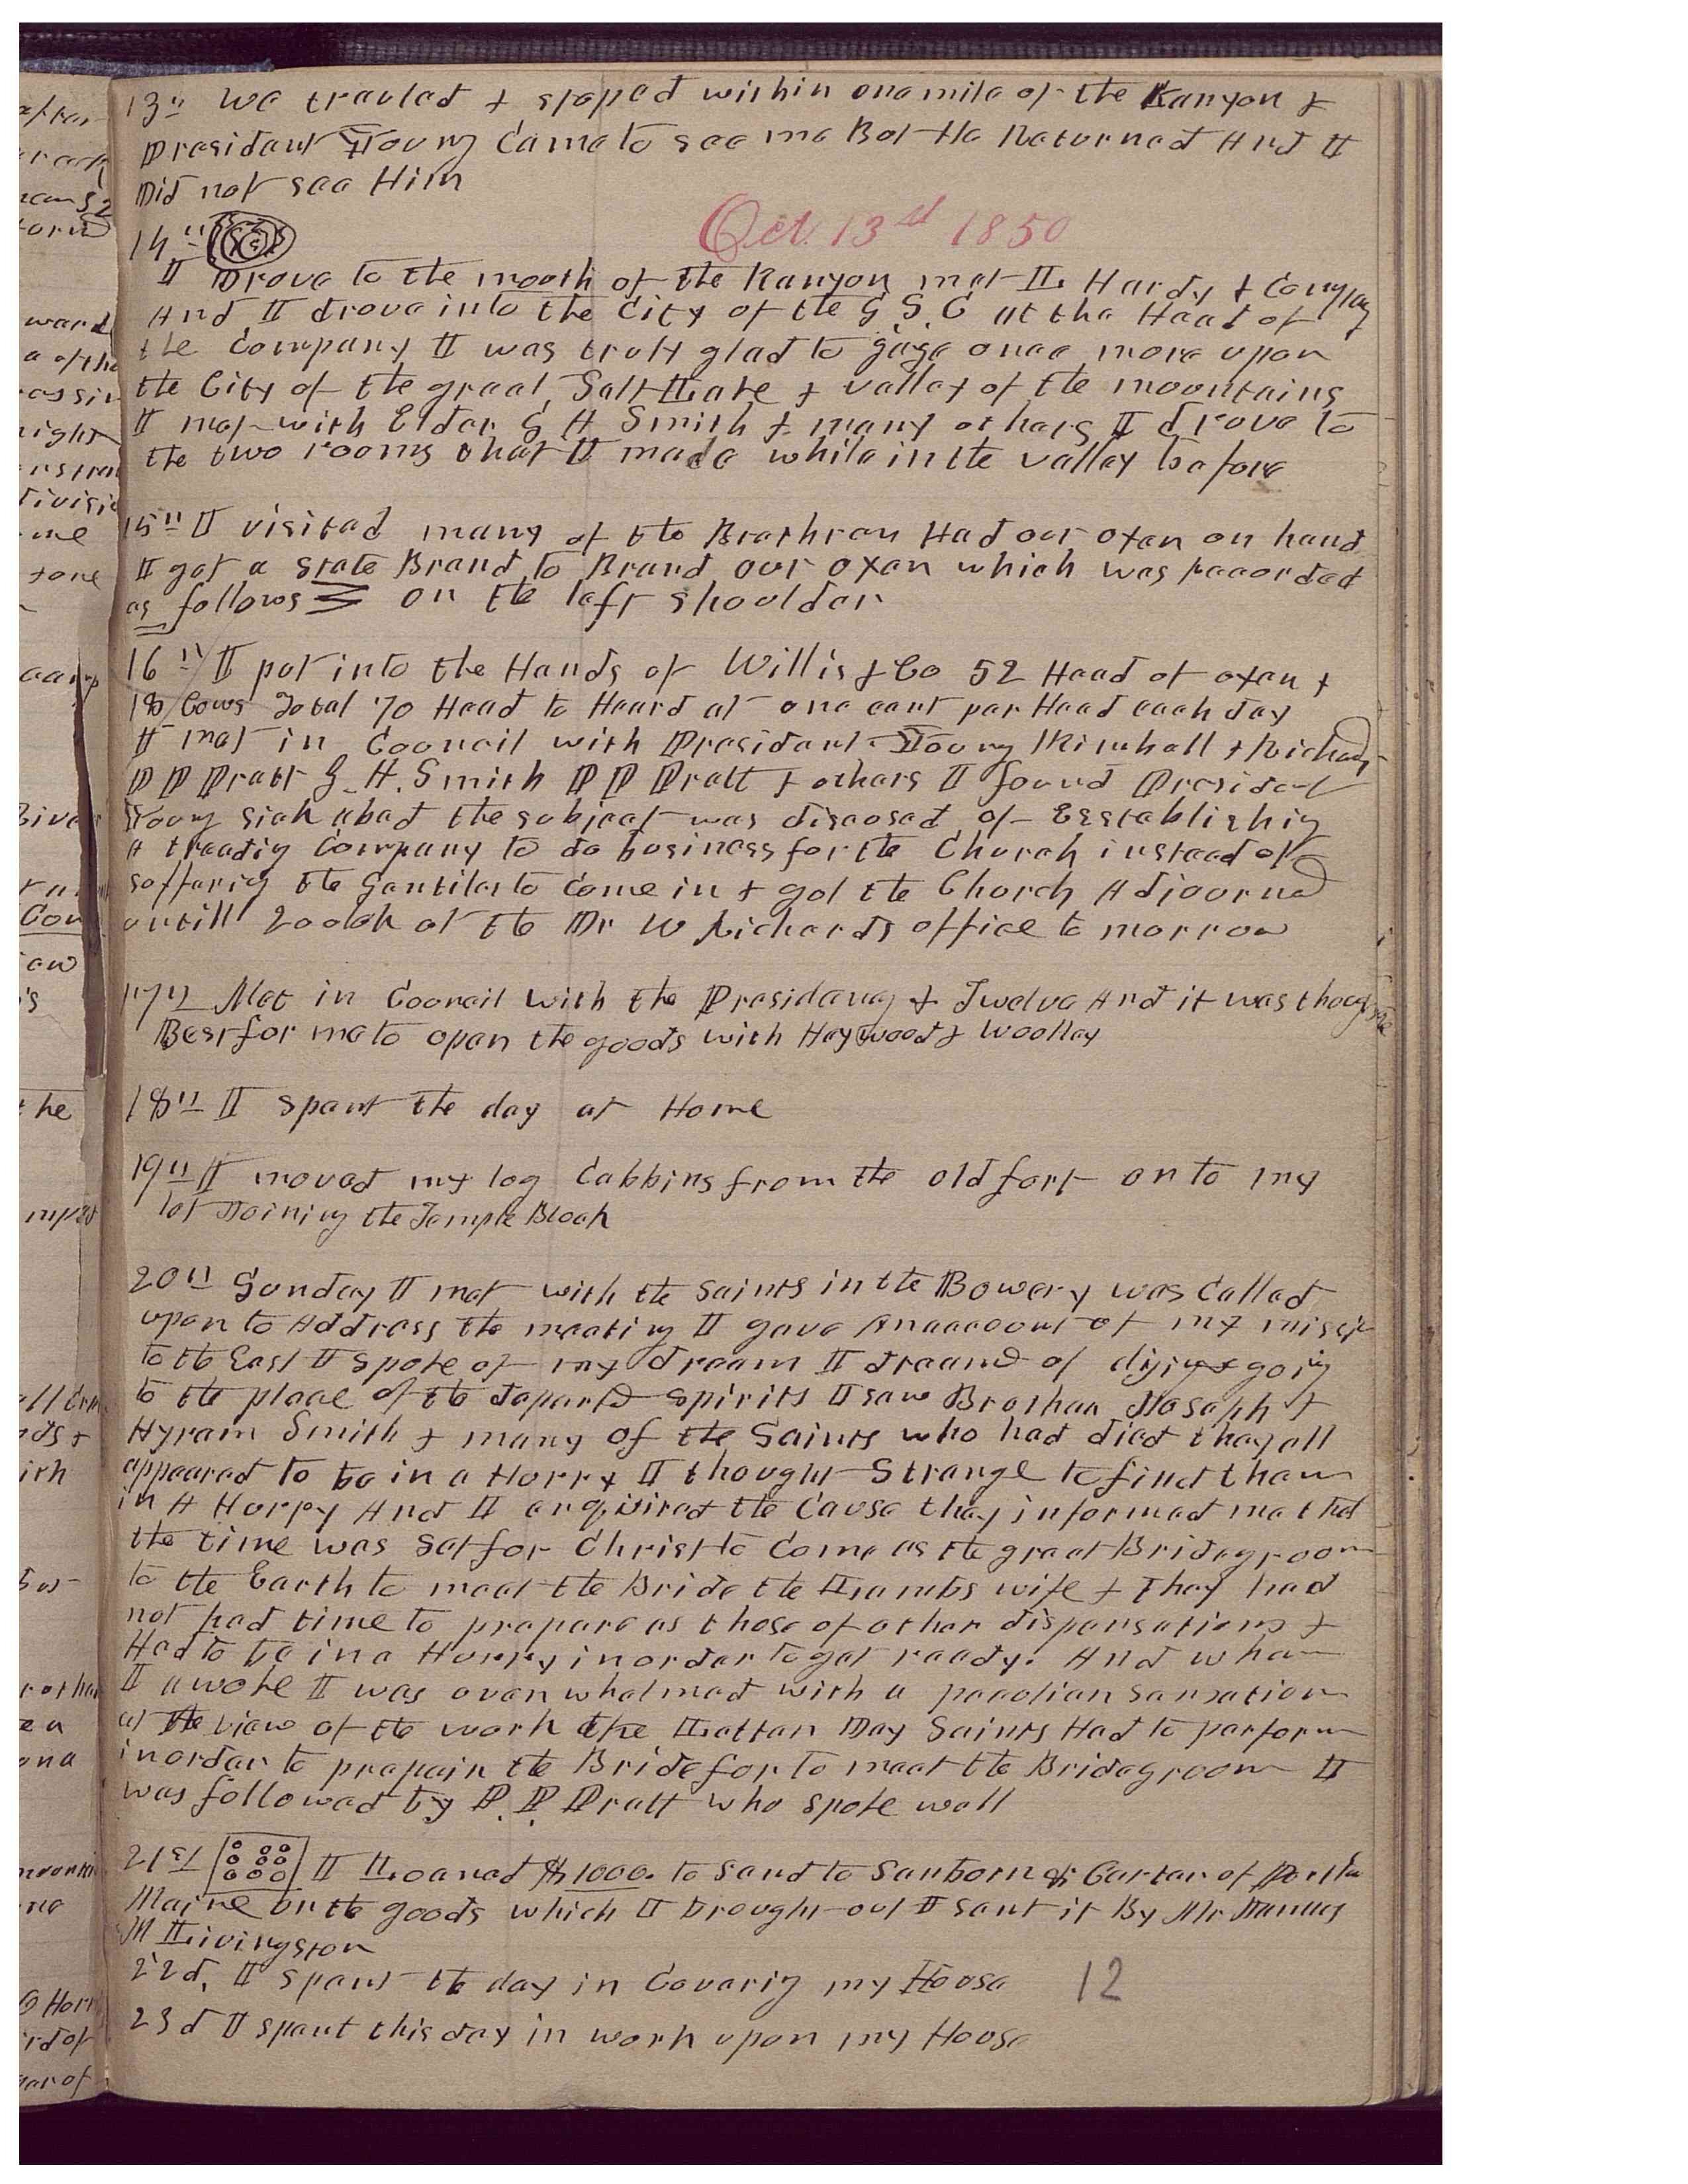 13" We traveled & stoped within one mile of the Kanyon &
President Young Came to see me But He Returned And I
Did not see Him
Oct. 13rd 1850
14"
I Drove to the mouth of the Kanyon met L. Hardy & Company
And I drove into the City of the G. S. C at the Head of
the Company I was truly glad to gaze once more upon
the City of the great Salt Lake & valley of the mountains
I met with Elder G A Smith & many others I drove to
the two rooms that I made while in the valley before
15" I visited many of the Brethren Had our oxen on hand
I got a State Brand to Brand our oxen which was recorded
as follows on the left shoulder
16" I put into the Hands of Willis & Co 52 Head of oxen &
18 Cows Total 70 Head to Heard at one cent per Head each day
I met in Council with President Young Kimball & Richards
P P Pratt G. A. Smith P P Pratt & others I found President
Young sick abed the subject was discused of Esstablishig
A treadig Company to do business for the Church instead of
sufferig the Gentiles to Come in & gol the Church Adjourned
untill 2 oclok at the Dr W Richards office to morrow
17" Met in Council with the Presidency & Twelve And it was thought
Best for me to open the goods with Haywood & Woolley
18" I spent the day at Home
19" I moved my log Cabbins from the old fort on to my
lot Joining the Temple Block
20" Sunday I met with the Saints in the Bowery was Called
upon to Address the meeting I gave An account of my missi
to the East I spoke of my dream I dreamed of dijing & going
to the place of the departed spirits I saw Brother Joseph &
Hyram Smith & many of the Saints who had died they all
appeared to be in a Hurry I thought Strange to find them
in A Hurry And I enquired the Cause they informed me that
the time was set for Christ to Come as the great Bridegroom
to the Earth to meet the Bride the Lambs wife & They had
not had time to prepare as those of other dispensations &
Had to be in a Hurry in order to get ready. And when
I awoke I was overwhelmed with a peculiar sensation
at the view of the work the Latter Day Saints Had to perform
in order to prepair the Bride for to meet the Bridegroom I
was followed by P. P Pratt who spoke well
21st I Loaned $1000. to send to Sanborn & Carter of
Maine on the goods which I brought out I sent it By Mr James
M Livingston
22d. I spent the day in Coverig my House
12
23d I spent this day in work upon my House